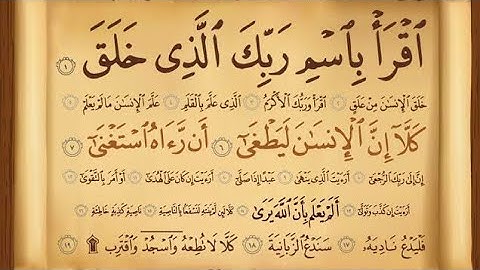 ٱقۡرَأۡ بِٱسۡمِ رَبِّكَ ٱلَّذِى خَلَقَ ١
خَلَقَ ٱلۡإِنسَٰنَ مِنۡ عَلَقٍ ٢ ٱقۡرَأۡ وَرَبُّكَ ٱلۡأَكۡرَمُ ٣ ٱلَّذِى عَلَّمَ بِٱلۡقَلَمِ ٤ عَلَّمَ ٱلۡإِنسَٰنَ مَا لَمۡ يَعۡلَمۡ ٥
كَلَّآ إِنَّ ٱلۡإِنسَٰنَ لَيَطۡغَىٰٓ ٦ أَن رَّءَاهُ ٱسۡتَغۡنَىٰٓ ٧
إِنَّ إِلَىٰ رَبِّكَ ٱلرُّجۡعَىٰٓ ٨ أَرَءَيۡتَ ٱلَّذِى يَنۡهَىٰ ٩ عَبۡدًا إِذَا صَلَّىٰٓ ١٠ أَرَءَيۡتَ إِن كَانَ عَلَى ٱلۡهُدَىٰٓ ١١ أَوۡ أَمَرَ بِٱلتَّقۡوَىٰٓ ١٢
أَرَءَيۡتَ إِن كَذَّبَ وَتَوَلَّىٰٓ ١٣ أَلَمۡ يَعۡلَم بِأَنَّ ٱللَّهَ يَرَىٰ ١٤ كَلَّا لَئِن لَّمۡ يَنتَهِ لَنَسۡفَعَۢا بِٱلنَّاصِيَةِ ١٥ نَاصِيَةٍ كَٰذِبَةٍ خَاطِئَةٍ ١٦
فَلۡيَدۡعُ نَادِيَهُۥ ١٧ سَنَدۡعُ ٱلزَّبَانِيَةَ ١٨ كَلَّا لَا تُطِعۡهُ وَٱسۡجُدۡ وَٱقۡتَرِب ۩ ١٩